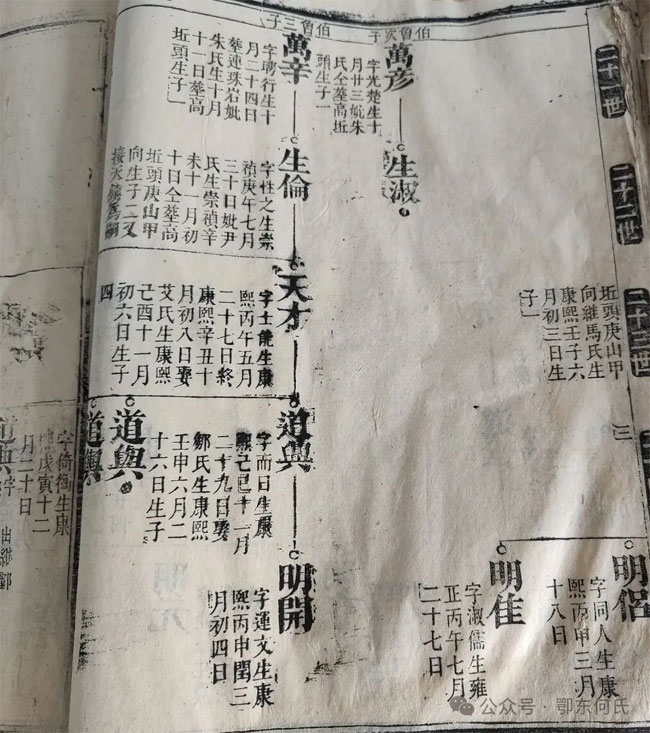 二十一世
二十二世
二十三世
伯魯次子
萬彥
字光楚生十
月廿三妣朱
氏仝墓高坵
頭生子一
生淑
坵頭庚山甲
向繼馬氏生
康熙壬子六
月初三日生
子一
三
明侶
字同人生康
熙丙申三月
十八日
明隹
字淑儒生雍
正丙午七月
二十七日
伯魯三子
萬辛
字聘行生十
月二十四日
墓連珠岩妣
朱氏生十月
十一日墓高
坵頭生子一
生倫
字性之生崇
禎庚午七月
三十日妣尹
氏生崇禎辛
未十一月初
十日仝墓高
坵頭庚山甲
向生子二又
天才
字士能生康
熙丙午五月
二十七日終
康熙辛丑十
月初八日娶
艾氏生康熙
己酉十一月
初六日生子
四
道興
字而日生康
熙己巳十一月
二十九日娶
鄒氏生康熙
壬申六月二
十六日生子
明開
字運文生康
熙丙申閏三
月初四日
道與
道輿
字倚衡生康
熙戊寅十二
月二十日
道興
字
公众号·鄂东何氏